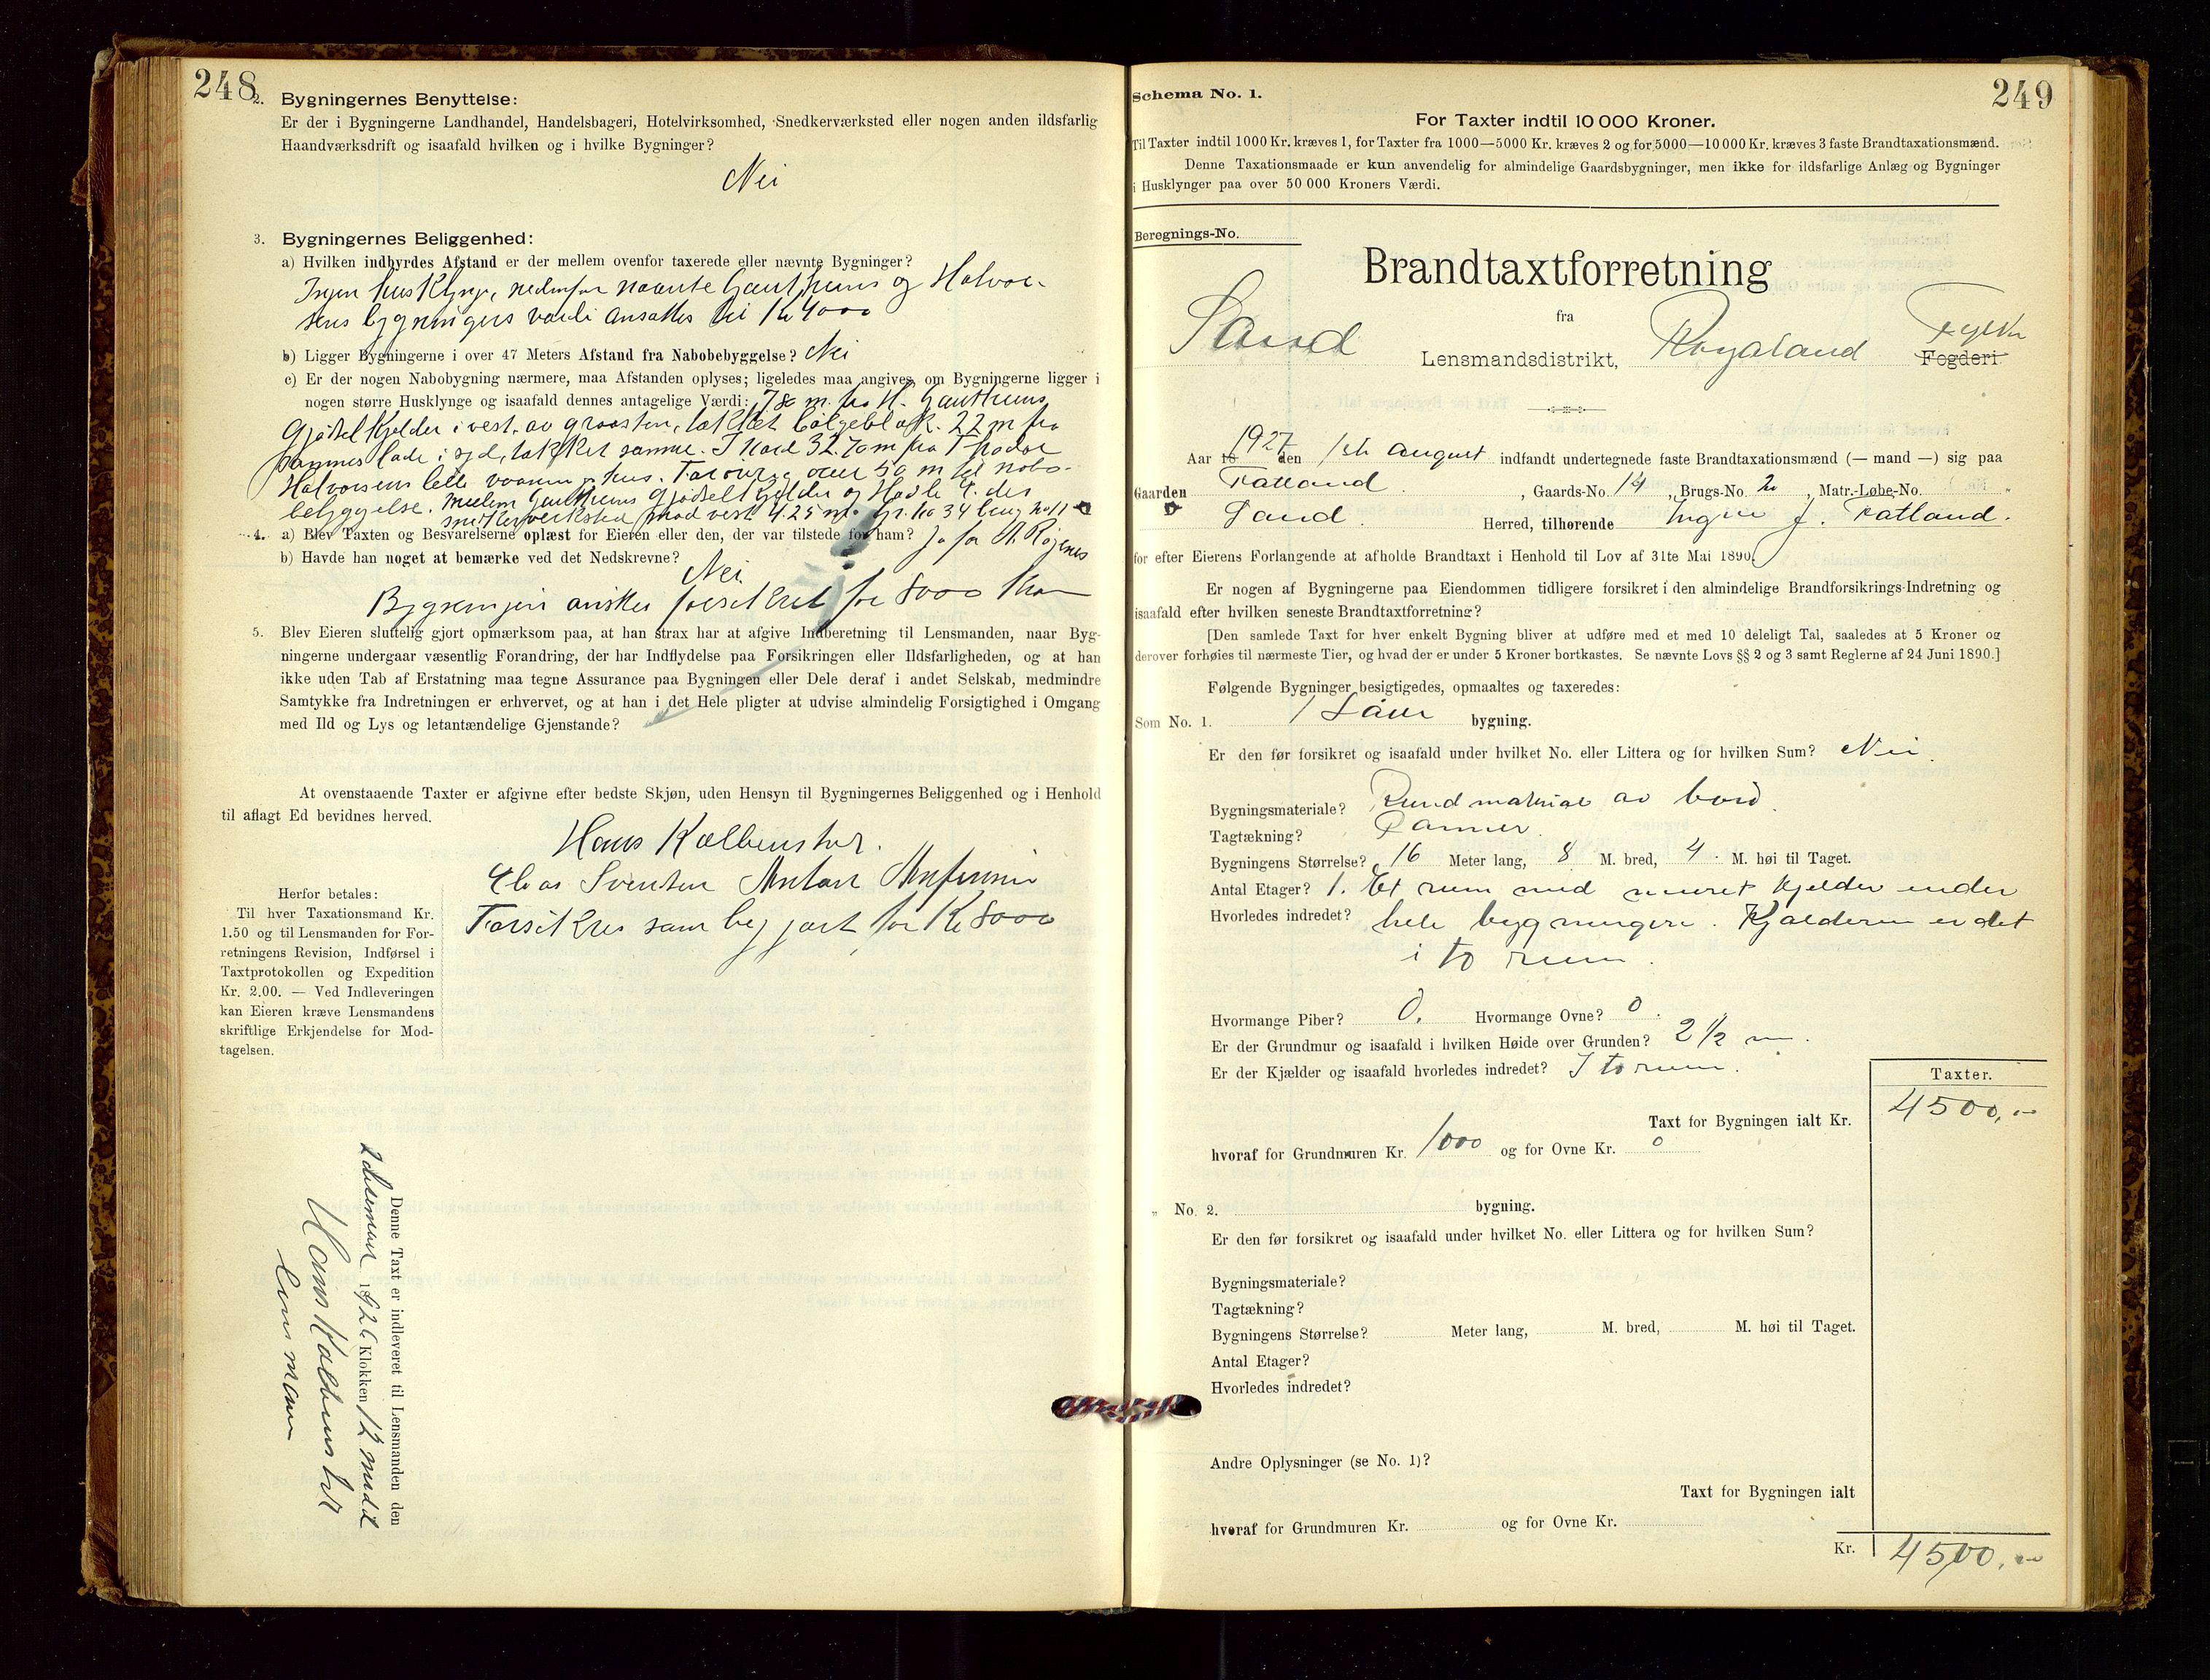 248
2. Bygningernes Benyttelse:
Er der i Bygningerne Landhandel, Handelsbageri, Hotelvirksomhed, Snedkerværksted eller nogen anden ildsfarlig
Haandværksdrift og isaafald hvilken og i hvilke Bygninger?
Nei
3. Bygningernes Beliggenhed:
a) Hvilken indbyrdes Afstand er der mellem ovenfor taxerede eller nævnte Bygninger?
Ingen husklynge, nedenfor nævnte Gauthuns og Halvor-
sens bygningers værdi ansættes til 14000
b) Ligger Bygningerne i over 47 Meters Afstand fra Nabobebyggelse? Nei
c) Er der nogen Nabobygning nærmere, maa Afstanden oplyses; ligeledes maa angives, om Bygningerne ligger i
nogen større Husklynge og isaafald dennes antagelige Værdi: 78 m. fra H. Gauthuns
gjødselkjelder i vest, av graasten, tækket bølgeblek. 22 m fra
sammes lade i syd, tækket samme. I Nord 32.70 m fra Thodor
Halvorsens lille vaaningshus. Forøvrig over 50 m til nabo-
bebyggelse. Mellem Gauthuns gjødselkjelder og
snikkerverksted mod vest 4.25 m.
4. a) Blev Taxten og Besvarelserne oplæst for Eieren eller den, der var tilstede for ham? Ja for
b) Havde han noget at bemærke ved det Nedskrevne?
Nei
Bygningen ønskes forsikret for 8000
5. Blev Eieren sluttelig gjort opmærksom paa, at han strax har at afgive Indberetning til Lensmanden, naar Byg-
ningerne undergaar væsentlig Forandring, der har Indflydelse paa Forsikringen eller Ildsfarligheden, og at han
ikke uden Tab af Erstatning maa tegne Assurance paa Bygningen eller Dele deraf i andet Selskab, medmindre
Samtykke fra Indretningen er erhvervet, og at han i det Hele pligter at udvise almindelig Forsigtighed i Omgang
med Ild og Lys og letantændelige Gjenstande?
At ovenstaaende Taxter er afgivne efter bedste Skjøn, uden Hensyn til Bygningernes Beliggenhed og i Henhold
til aflagt Ed bevidnes herved.
Hans Kolbenstvt.
Svensen Anton
Forsikres som begjært for Kr 8000
Herfor betales:
Til hver Taxationsmand Kr.
1.50 og til Lensmanden for For-
retningens Revision, Indførsel i
Taxtprotokollen og Expedition
Kr. 2.00. — Ved Indleveringen
kan Eieren kræve Lensmandens
skriftlige Erkjendelse for Mod-
tagelsen.
Denne Taxt er indleveret til Lensmanden den
2 desember 1926 Klokken 12 middl
Hans
lensmann
249
Schema No. 1.
For Taxter indtil 10 000 Kroner.
Til Taxter indtil 1000 Kr. kræves 1, for Taxter fra 1000—5000 Kr. kræves 2 og for 5000—10 000 Kr. kræves 3 faste Brandtaxationsmænd.
Denne Taxationsmaade er kun anvendelig for almindelige Gaardsbygninger, men ikke for ildsfarlige Anlæg og Bygninger
i Husklynger paa over 50 000 Kroners Værdi.
Beregnings-No.
Brandtaxtforretning
fra
Sand Lensmandsdistrikt, Rogaland Fylke Fogderi
Aar 18 1927 den 1ste august indfandt undertegnede faste Brandtaxationsmænd (— mand —) sig paa
Gaarden Fatland, Gaards-No. 14, Brugs-No. 2, Matr.-Løbe-No.
Sand Herred, tilhørende J. Fatland.
for efter Eierens Forlangende at afholde Brandtaxt i Henhold til Lov af 31te Mai 1890.
Er nogen af Bygningerne paa Eiendommen tidligere forsikret i den almindelige Brandforsikrings-Indretning og
isaafald efter hvilken seneste Brandtaxtforretning?
[Den samlede Taxt for hver enkelt Bygning bliver at udføre med et med 10 deleligt Tal, saaledes at 5 Kroner og
derover forhøies til nærmeste Tier, og hvad der er under 5 Kroner bortkastes. Se nævnte Lovs §§ 2 og 3 samt Reglerne af 24 Juni 1890.]
Følgende Bygninger besigtigedes, opmaaltes og taxeredes:
Som No. 1. 1 Låve bygning.
Er den før forsikret og isaafald under hvilket No. eller Littera og for hvilken Sum? Nei.
Bygningsmateriale? Bindmatriale av bord.
Tagtækning? Panner.
Bygningens Størrelse? 16 Meter lang, 8 M. bred, 4 M. høi til Taget.
Antal Etager? 1. Et rum med muret kjelder under
Hvorledes indredet? hele bygningen. Kjælderen er delt
i to rum.
Hvormange Piber? 0. Hvormange Ovne? 0.
Er der Grundmur og isaafald i hvilken Høide over Grunden? 2 1/2 m.
Er der Kjælder og isaafald hvorledes indredet? I to rum.
Taxter.
Taxt for Bygningen ialt Kr. 4500,-
hvoraf for Grundmuren Kr. 1000 og for Ovne Kr. 0
„ No. 2. bygning.
Er den før forsikret og isaafald under hvilket No. eller Littera og for hvilken Sum?
Bygningsmateriale?
Tagtækning?
Bygningens Størrelse? Meter lang, M. bred, M. høi til Taget.
Antal Etager?
Hvorledes indredet?
Andre Oplysninger (se No. 1)?
Taxt for Bygningen ialt
hvoraf for Grundmuren Kr. og for Ovne Kr.
Kr. 4500,-